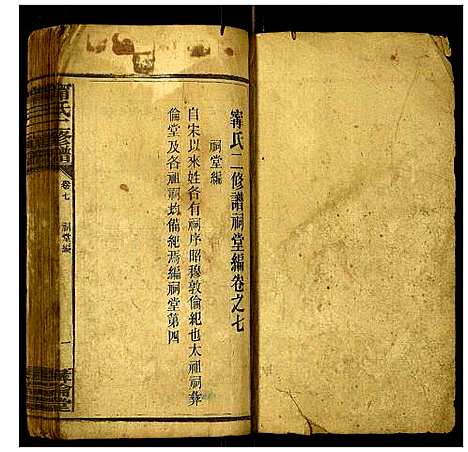 甯氏二修譜祠堂編卷之七
祠堂編
自宋以來姓各有祠序昭穆敦倫紀也太祖祠彝
倫堂及各祖祠均備紀焉編祠堂第四
甯氏二修譜
卷七
祠堂編
一
彝倫堂